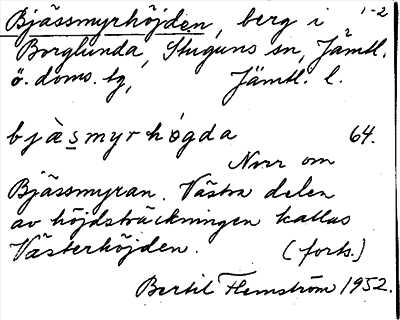 Bjässmyrhöjden, berg i 1-2
Borglunda, Stuguns sn, Jämtl.
ö. doms. tg, Jämtl. l.
bjàsmyrhøgda 64.
Norr om
Bjässmyran. Västra delen
av höjdsträckningen kallas
Västerhöjden. (forts.)
Bertil Flemström 1952.